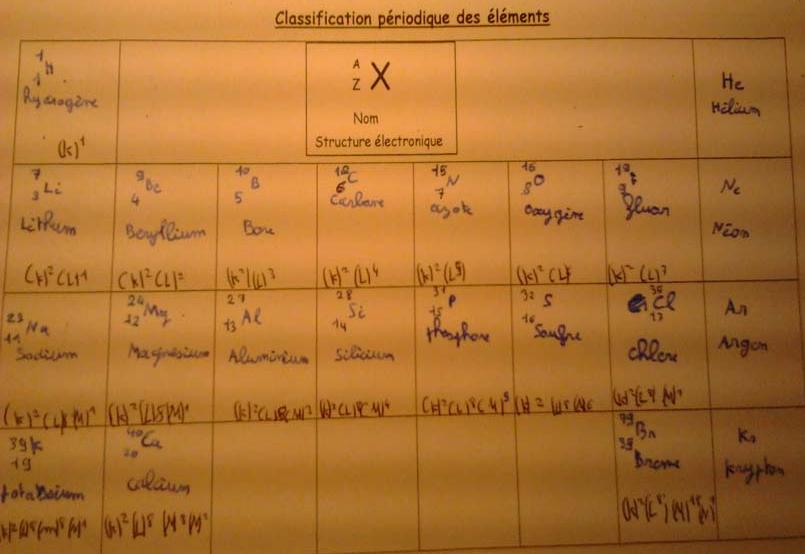 Classification périodique des éléments
1
1 H
hydrogène
(k)1
A
Z X
Nom
Structure électronique
He
Hélium
7
3 Li
Lithium
(k)2 (L)1
9 Be
4
Beryllium
(k)2 (L)2
10 B
5
Bore
(k)2 (L)3
12 C
6
Carbone
(k)2 (L)4
15 N
7
azote
(k)2 (L5)
16 O
8
oxygène
(k)2 (L)
19 F
9
fluor
(k)2 (L)7
Ne
Néon
23
11 Na
Sodium
(k)2 (L)8 (M)1
24 Mg
12
Magnésium
(k)2 (L)8 (M)2
27
13 Al
Aluminium
(k)2 (L)8 (M)3
28 Si
14
Silicium
(k)2 (L)8 (M)4
31 P
15
phosphore
(k)2 (L)8 (M)5
32 S
16
Soufre
(k)2 (L)8 (M)6
35 Cl
17
chlore
(k)2 (L)8 (M)7
Ar
Argon
39 K
19
(k)2 (L)8 (m)8 (N)1
40 Ca
20
calcium
(k)2 (L)8 (M)8 (N)2
79 Br
35
Brome
(k)2 (L8) (M)18 (N)7
Kr
krypton